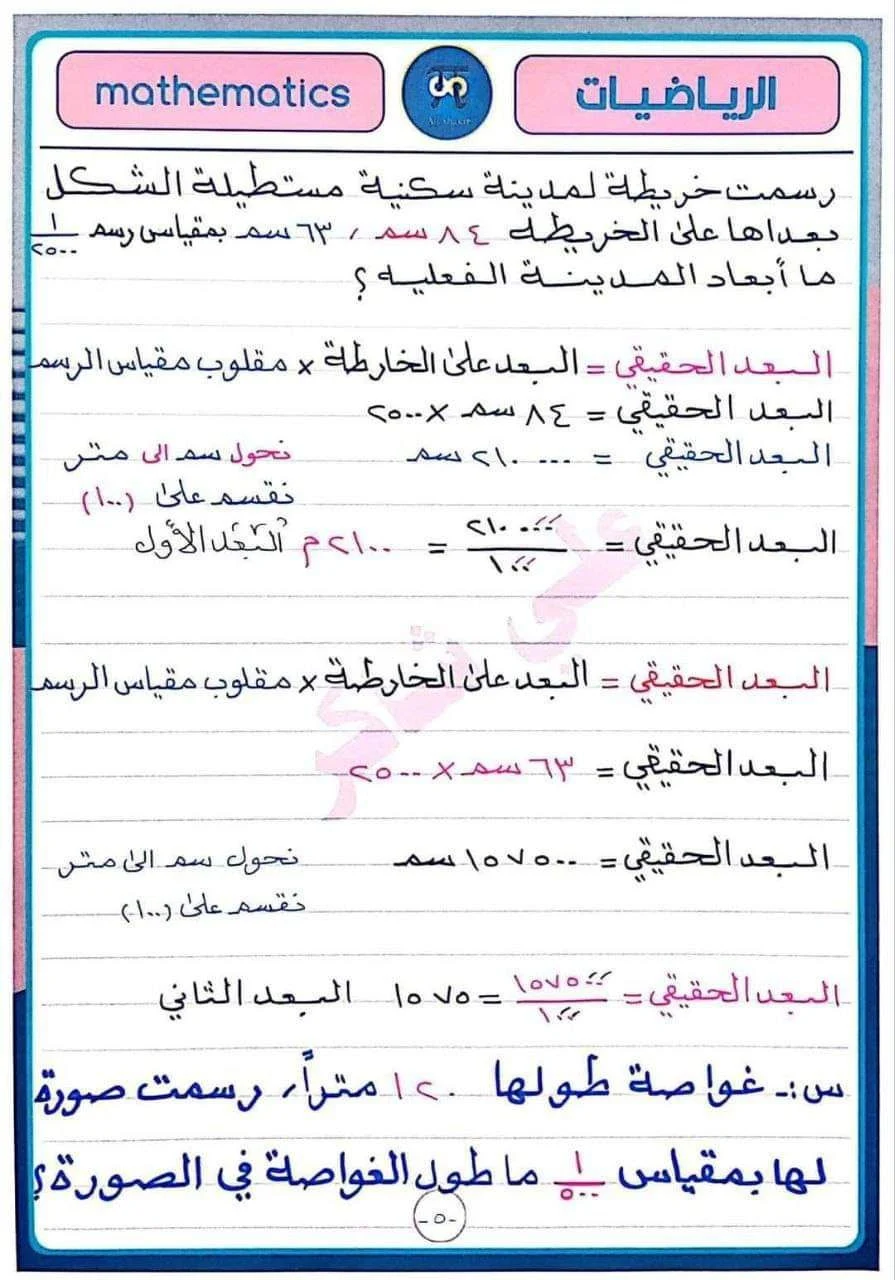 mathematics
الرياضيات
رسمت خريطة لمدينة سكنية مستطيلة الشكل
بعداها على الخريطة ٨٤ سم ، ٦٣ سم بمقياس رسم ١/٢٥٠٠
ما أبعاد المدينة الفعلية ؟
البعد الحقيقي = البعد على الخارطة × مقلوب مقياس الرسم
البعد الحقيقي = ٨٤ سم × ٢٥٠٠
البعد الحقيقي = ٢١٠٠٠٠ سم نحول سم الى متر
نقسم على (١٠٠)
البعد الحقيقي = ٢١٠٠٠٠/١٠٠ = ٢١٠٠ م البُعْد الأول
علي شاكر
البعد الحقيقي = البعد على الخارطة × مقلوب مقياس الرسم
البعد الحقيقي = ٦٣ سم × ٢٥٠٠
البعد الحقيقي = ١٥٧٥٠٠ سم نحول سم الى متر
نقسم على (١٠٠)
البعد الحقيقي = ١٥٧٥٠٠/١٠٠ = ١٥٧٥ البعد الثاني
س :- غواصة طولها ١٢٠ متراً ، رسمت صورة
لها بمقياس ١/٥٠٠ ما طول الغواصة في الصورة ؟
-٥-